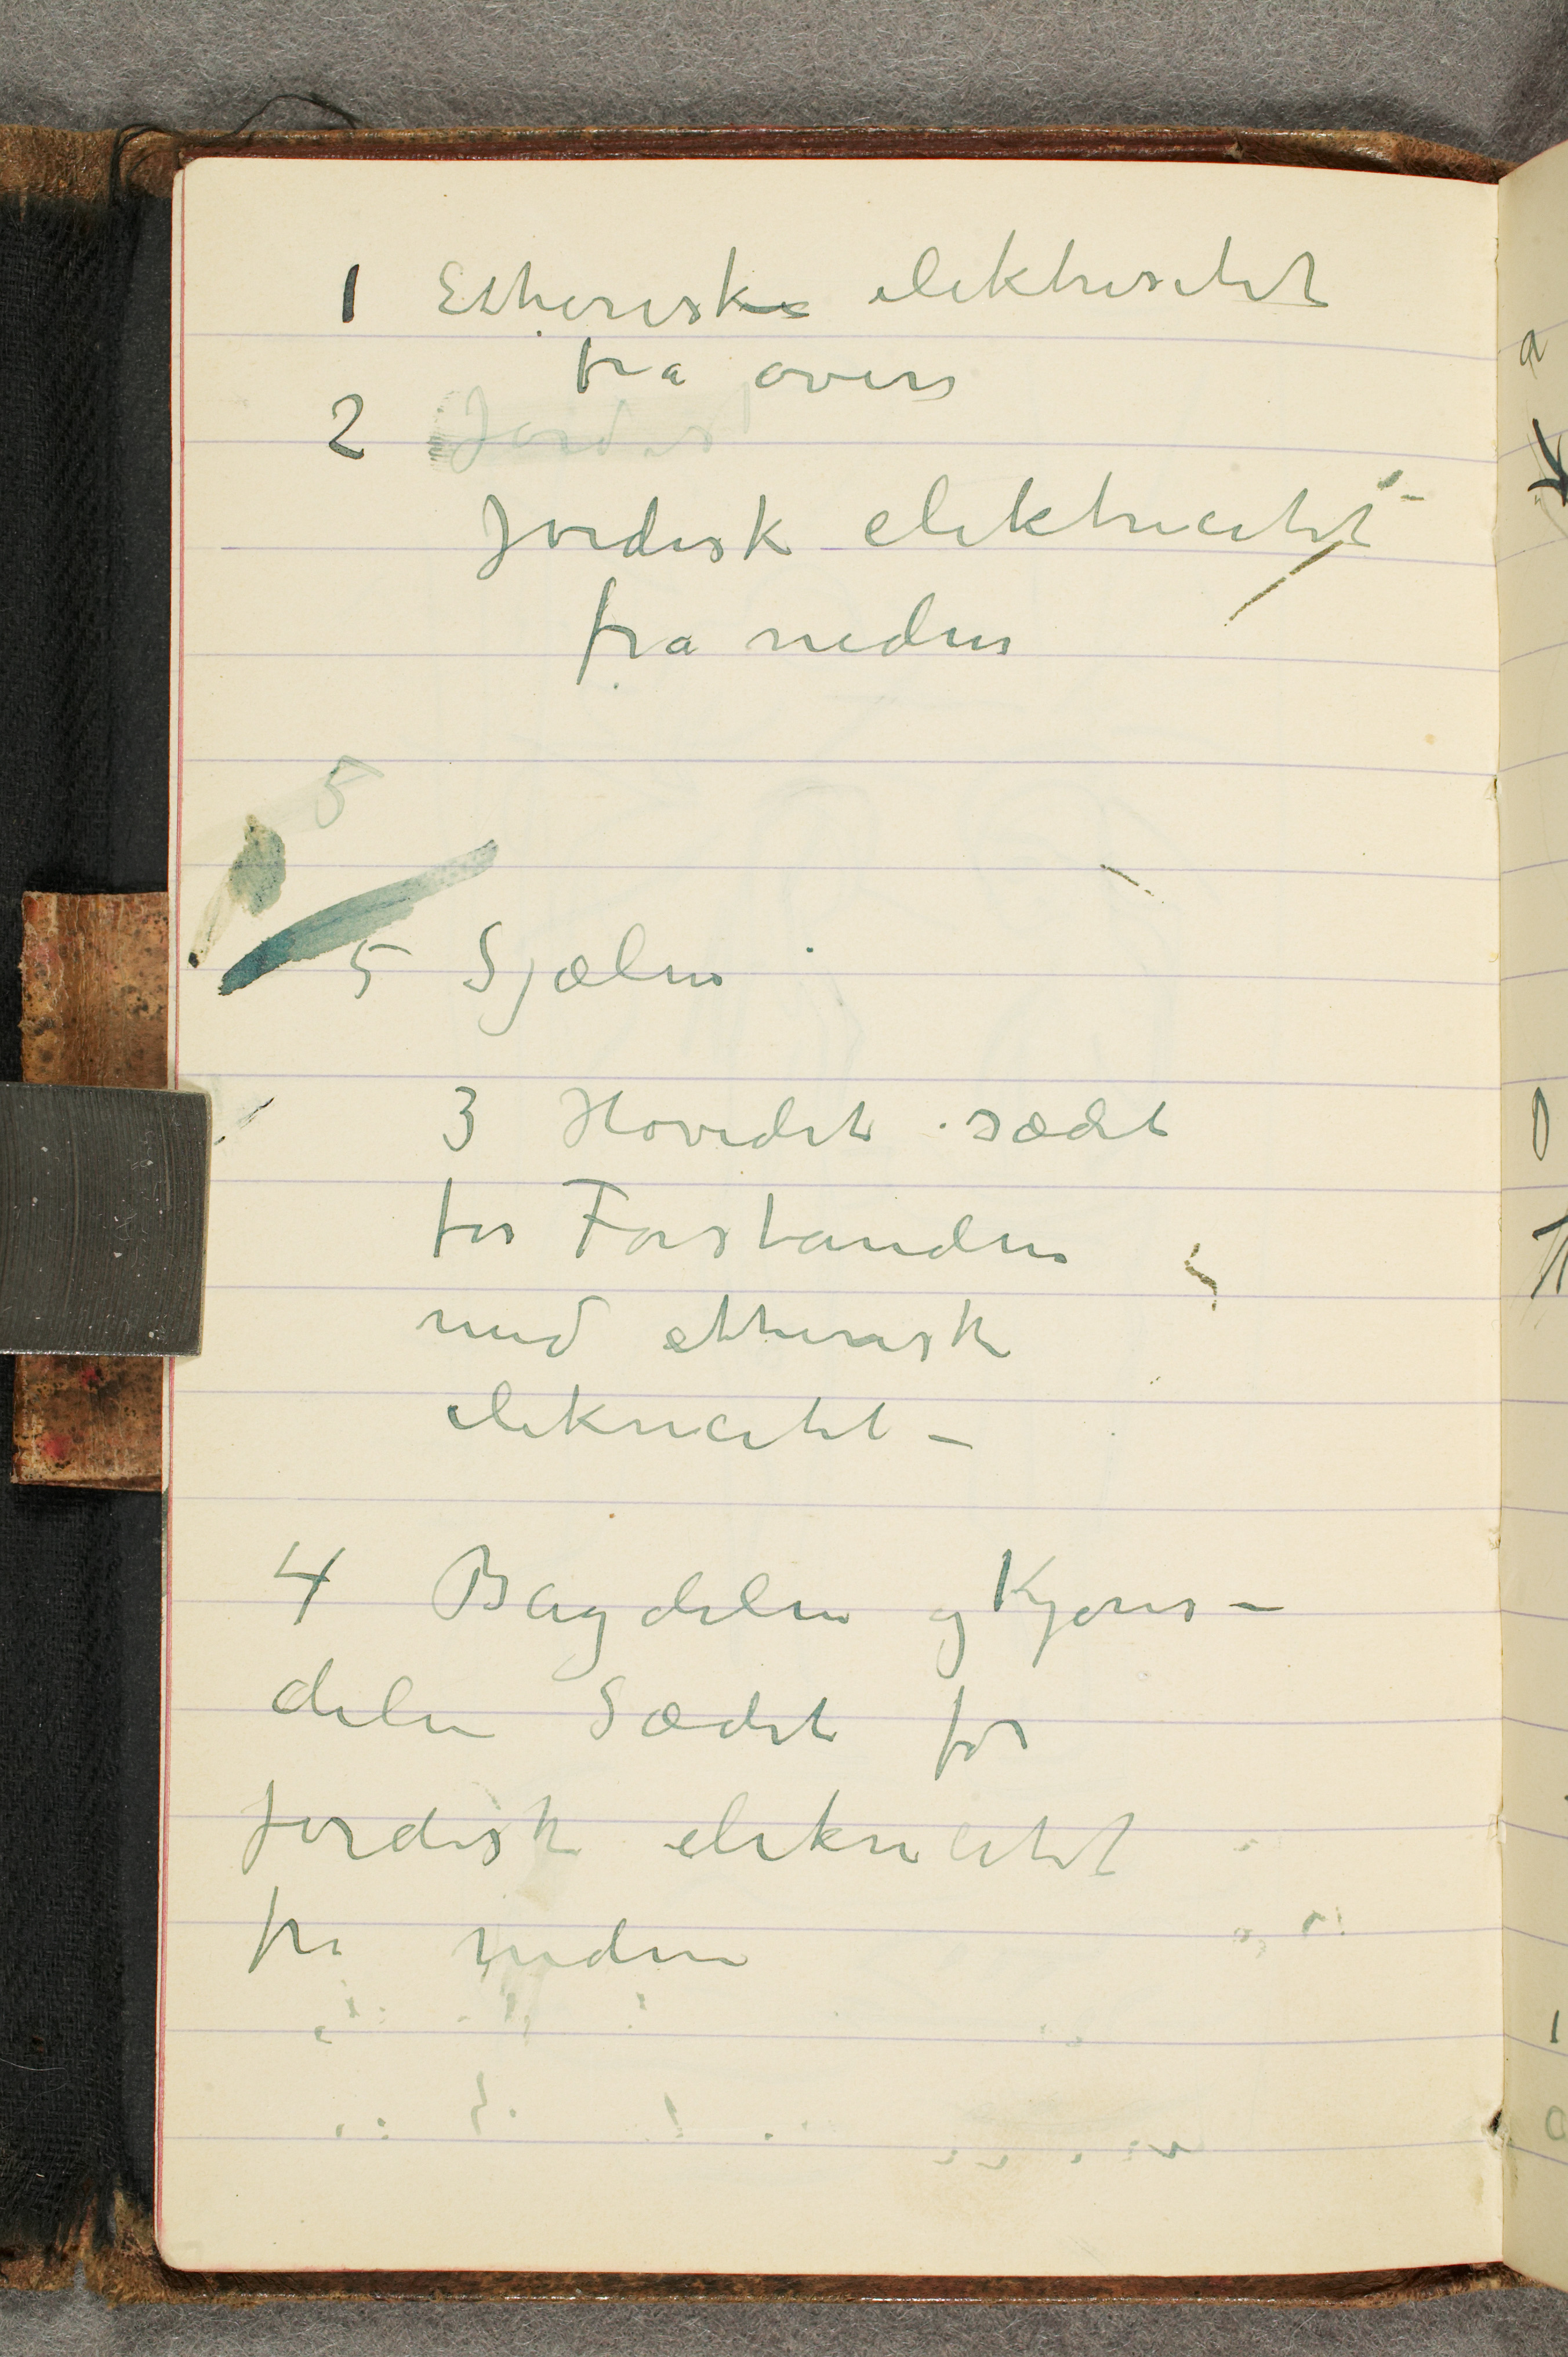 1 Etherisk elektrisitet
fra oven
2 Jordisk
Jordisk elektricitet
fra neden
5
5 Sjælen
3 Hovedet sædet
for Forstanden
med etherisk
elekricitet –
4 Bagdelen og Kjøns–
delen Sædet for
jordisk elekricitet
fra neden